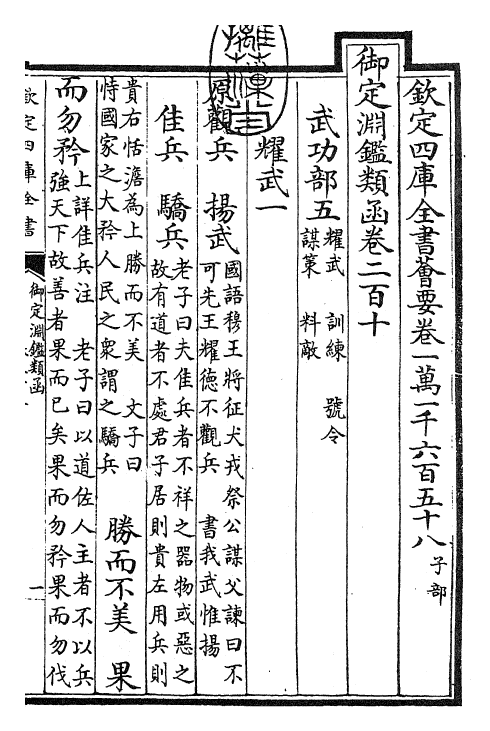 欽定四庫全書薈要卷一萬一千六百五十八 子部
御定淵鑑類函卷二百十
武功部五 耀武 訓練 號令
謀策 料敵
耀武一
原觀兵 揚武 國語穆王將征犬戎祭公謀父諫曰不
可先王耀德不觀兵 書我武惟揚
佳兵 驕兵 老子曰夫佳兵者不祥之器物或惡之
故有道者不處君子居則貴左用兵則
貴右恬澹為上勝而不美 文子曰
恃國家之大矜人民之衆謂之驕兵 勝而不美 果
而勿矜 上詳佳兵注 老子曰以道佐人主者不以兵
強天下故善者果而已矣果而勿矜果而勿伐
欽定四庫全書
御定淵鑑類函
一